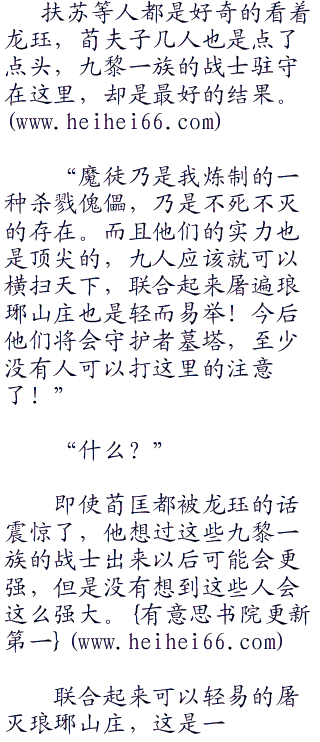 扶苏等人都是好奇的看着
龙珏，荀夫子几人也是点了
点头，九黎一族的战士驻守
在这里，却是最好的结果。
(www.heihei66.com)
“魔徒乃是我炼制的一
种杀戮傀儡，乃是不死不灭
的存在。而且他们的实力也
是顶尖的，九人应该就可以
横扫天下，联合起来屠遍琅
琊山庄也是轻而易举！今后
他们将会守护者墓塔，至少
没有人可以打这里的注意
了！”
“什么？”
即使荀匡都被龙珏的话
震惊了，他想过这些九黎一
族的战士出来以后可能会更
强，但是没有想到这些人会
这么强大。{有意思书院更新
第一}(www.heihei66.com)
联合起来可以轻易的屠
灭琅琊山庄，这是一